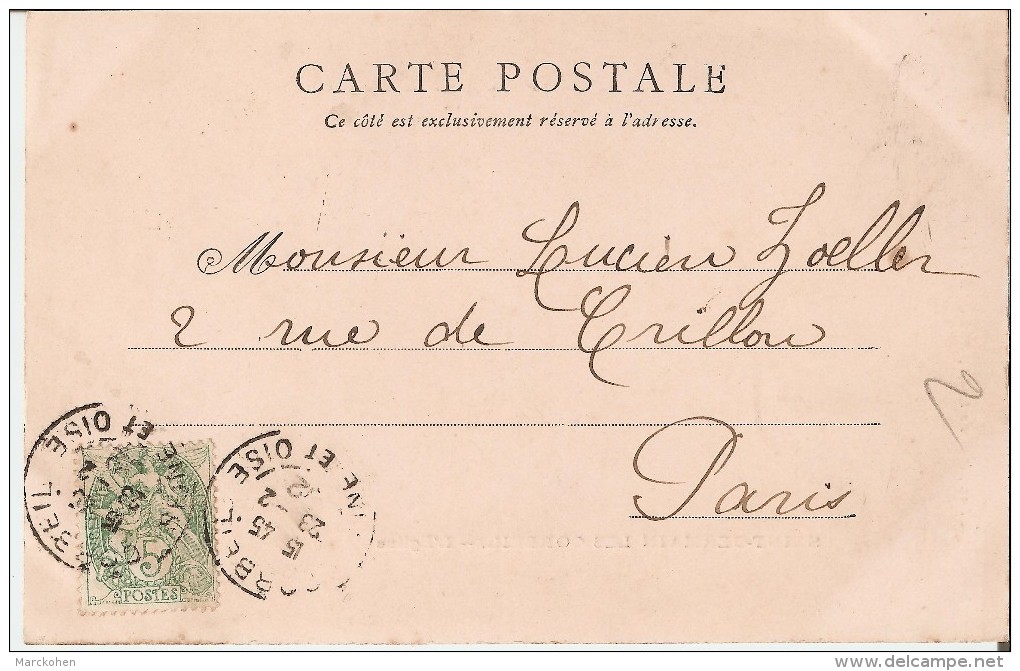 CARTE POSTALE
Ce côté est exclusivement réservé à l'adresse.
Monsieur Lucien Zoeller
2 rue de Crillon
Paris
2
CORBEIL
ET OISE
15 45
23 2
5
POSTES
Marckohen
www.delcampe.net